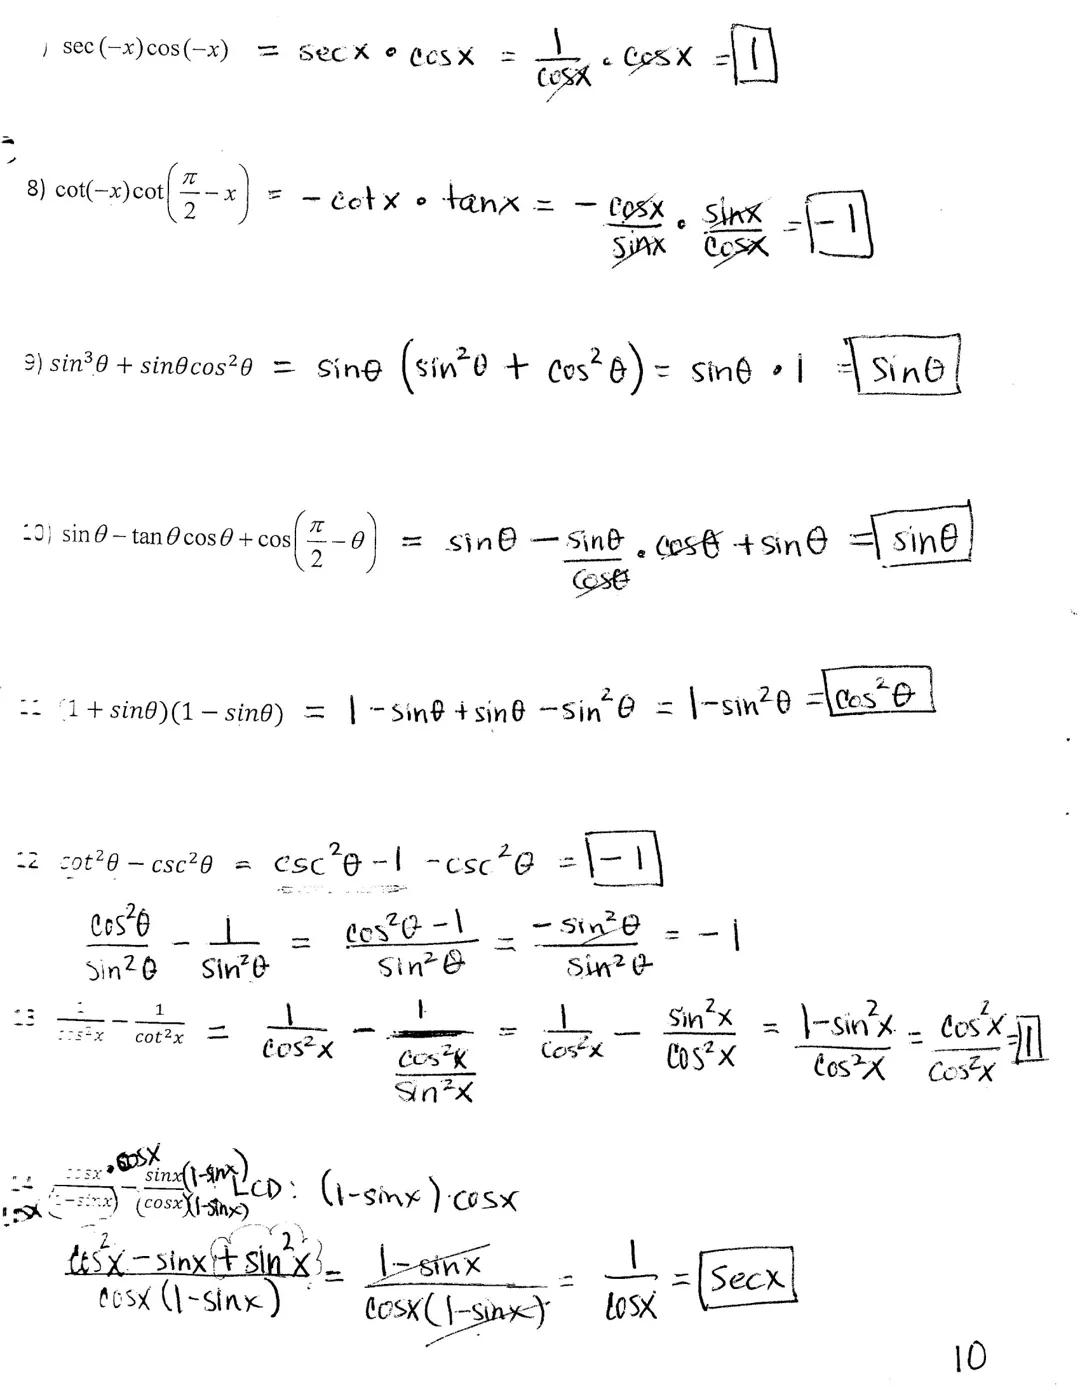 ) sec(−x)cos(−x) = secx • cosx = 1/cosx • cosx = 1
8) cot(−x)cot(π/2 − x) = −cotx • tanx = −cosx/sinx • sinx/cosx = −1
9) sin³θ + sinθcos²θ = sinθ (sin²θ + cos²θ) = sinθ • 1 = sinθ
10) sin θ − tan θ cos θ + cos(π/2 − θ) = sinθ − sinθ/cosθ • cosθ + sinθ = sinθ
11 (1 + sinθ)(1 − sinθ) = 1 − sinθ + sinθ − sin²θ = 1−sin²θ = cos²θ
12 cot²θ − csc²θ = csc²θ −1 −csc²θ = −1
cos²θ/sin²θ − 1/sin²θ = cos²θ −1/sin²θ = −sin²θ/sin²θ = −1
13 1/cos²x − 1/cot²x = 1/cos²x − 1/(cos²x/sin²x) = 1/cos²x − sin²x/cos²x = 1−sin²x/cos²x = cos²x/cos²x = 1
14 cosx • cosx/cosx(1−sinx) − sinx(1−sinx)/(cosx)(1−sinx) LCD: (1−sinx)·cosx
cos²x − sinx + sin²x/cosx (1−sinx) = 1−sinx/cosx(1−sinx) = 1/cosx = secx
10